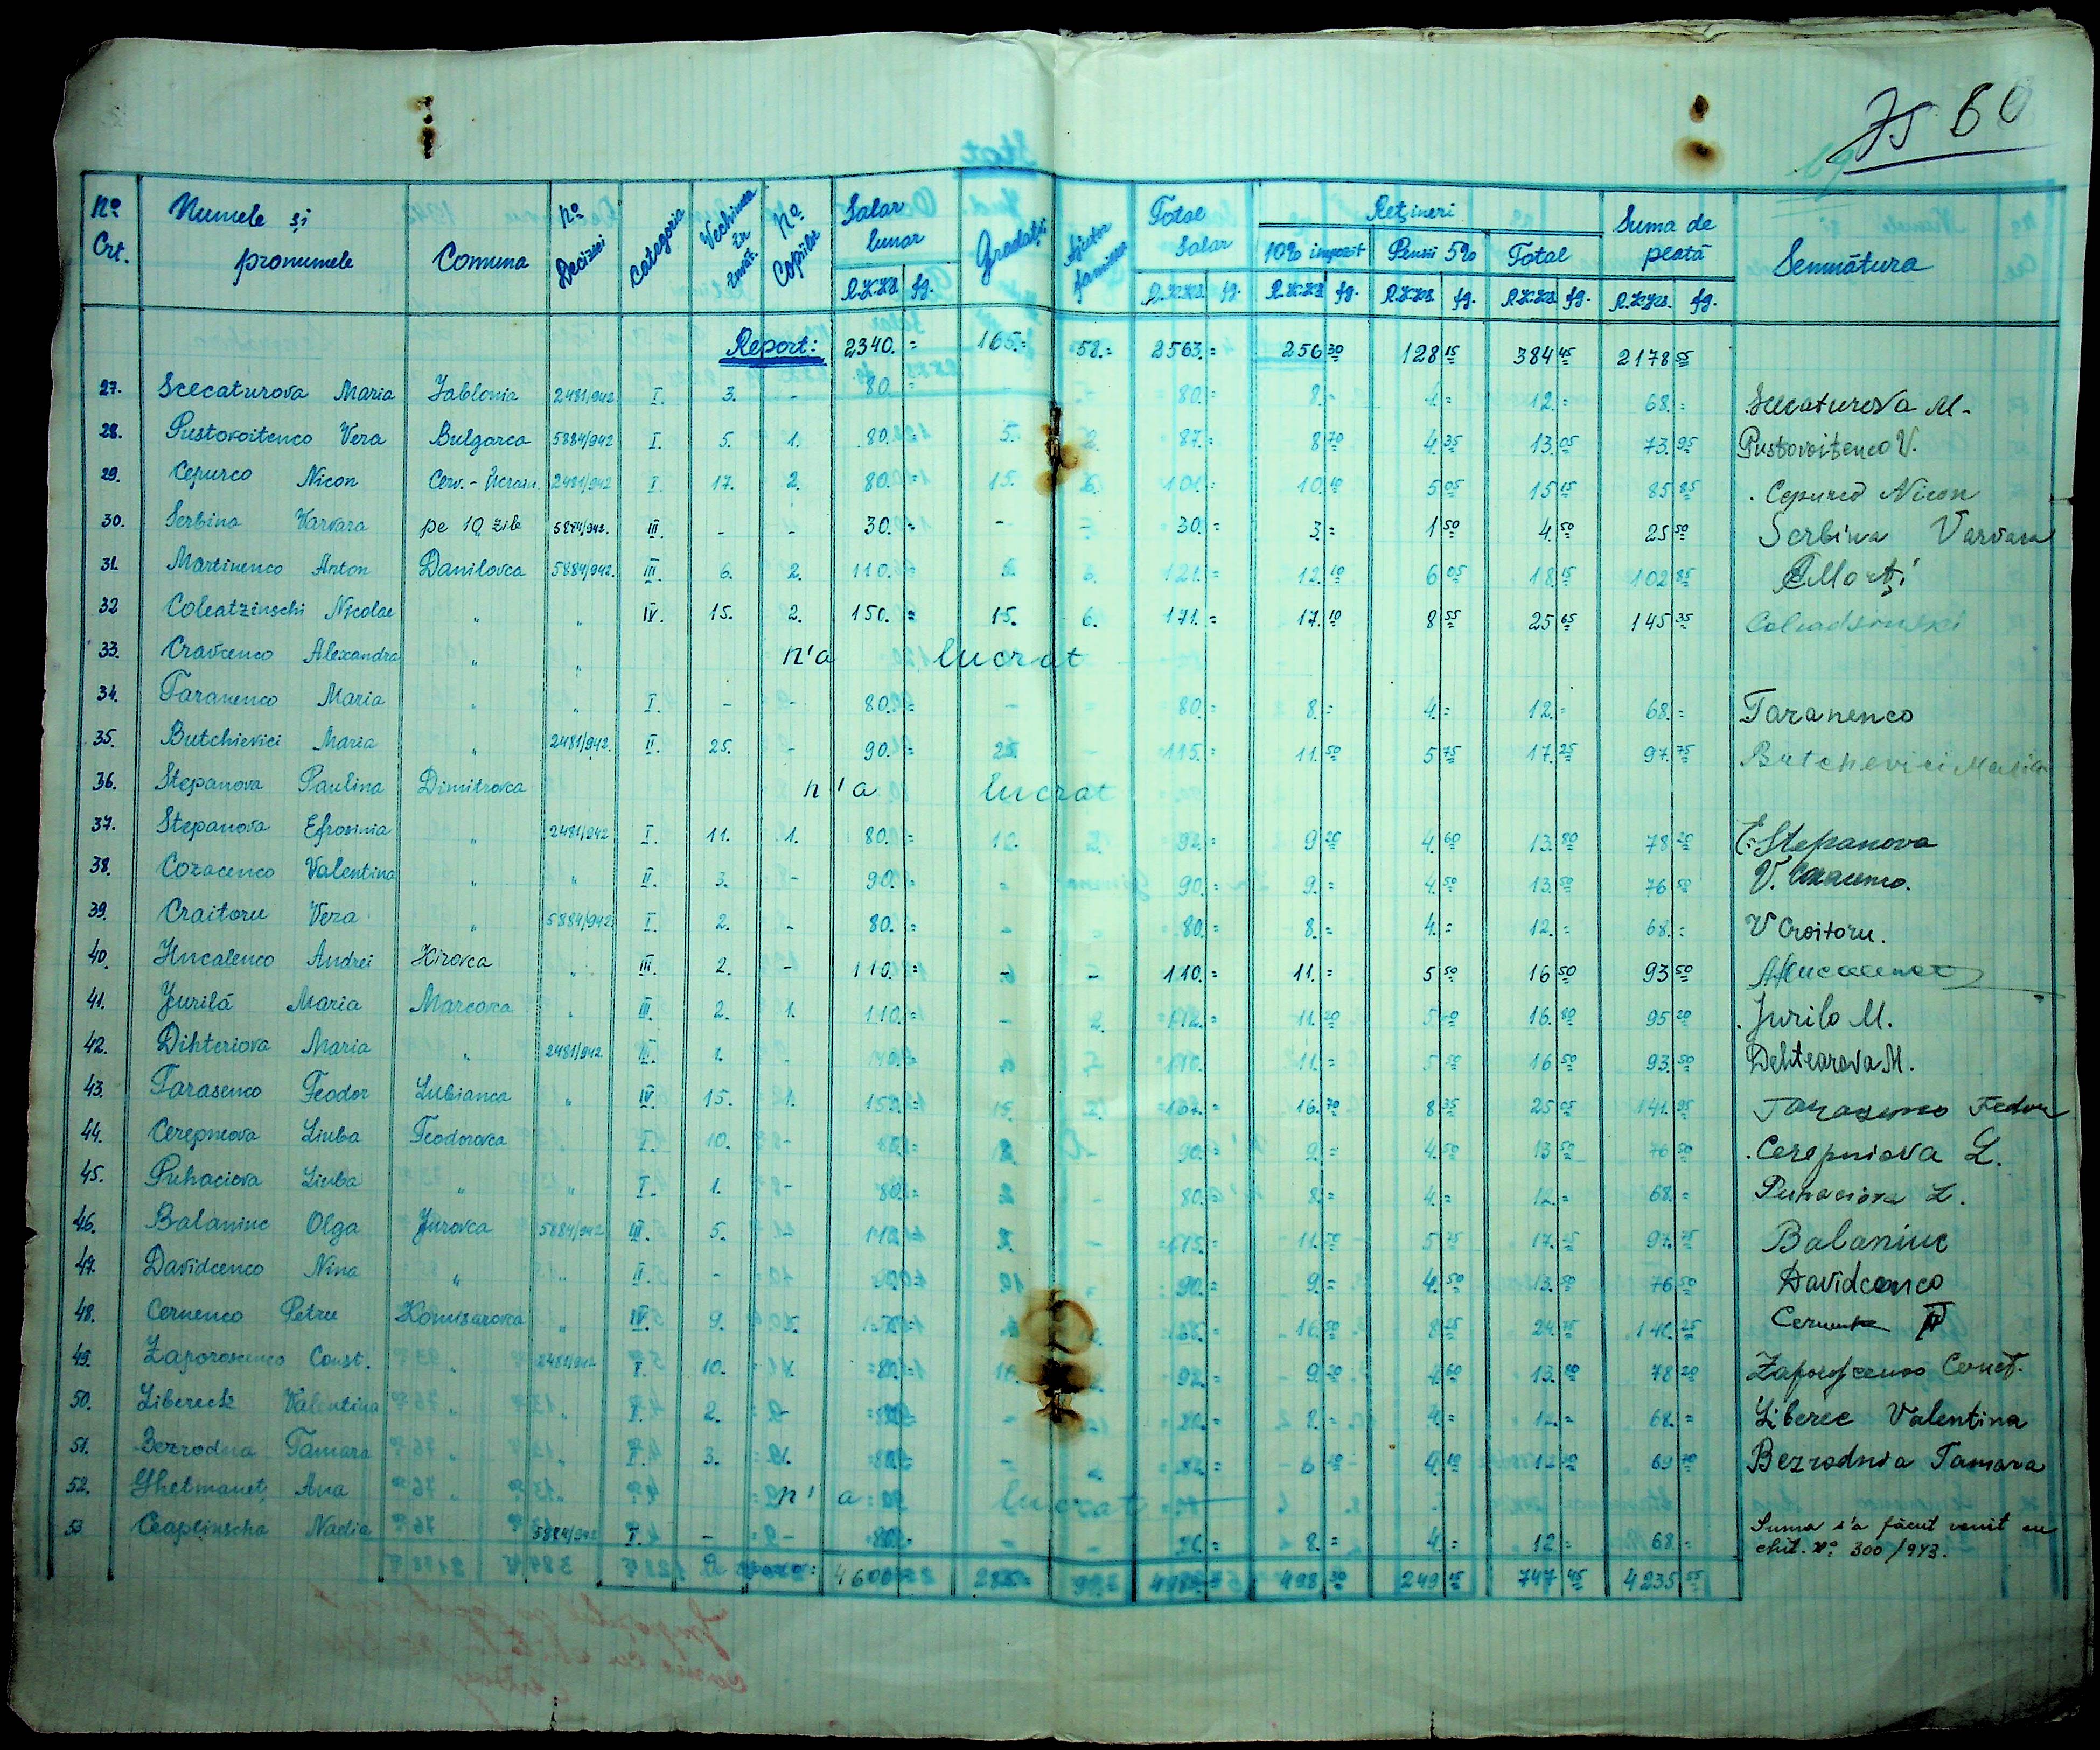 75 60
Nº Crt. Numele și pronumele Comuna Nº Deciziei Categoria Vechimea în învăț. Nº Copiilor Salar lunar Gradații Ajutor familiar Total Salar Rețineri Suma de plată Semnătura
10% impozit Pensii 5% Total
R.K.K.S. fg. R.K.K.S. fg. R.K.K.S. fg. R.K.K.S. fg. R.K.K.S. fg. R.K.K.S. fg.
Report: 2340. = 165. = 58. = 2563. = 256 30 128 15 384 45 2178 55
27. Scecaturova Maria Jablonia 2481/942 I. 3. - 80. = - - 80. = 8. - 4. = 12. = 68. = Scecaturova M-
28. Pustovoitenco Vera Bulgarca 5884/942 I. 5. 1. 80. = 5. 2. 87. = 8 70 4. 35 13. 05 73. 95 Pustovoitenco V.
29. Cepurco Nicon Cerv.-Ucrain. 2481/942 I. 17. 2. 80. = 15. 6. 101. = 10. 10 5 05 15 15 85 85 Cepurco Nicon
30. Serbina Varvara pe 10 zile 5884/942. III. - - 30. = - - 30. = 3. = 1 50 4. 50 25 50 Serbina Varvara
31. Martinenco Anton Danilovca 5884/942. III. 6. 2. 110. = 5. 6. 121. = 12. 10 6 05 18 15 102 85
32 Coleatzinschi Nicolae " " IV. 15. 2. 150. = 15. 6. 171. = 17. 10 8 55 25 65 145 35
33. Cravcenco Alexandra " " n'a lucrat
34. Taranenco Maria " " I. - - 80. = - - 80. = 8. = 4. = 12. = 68. = Taranenco
35. Butchievici Maria " 2481/942. II. 25. - 90. = 25. - 115. = 11. 50 5 75 17. 25 97. 75 Butchevici Maria
36. Stepanova Paulina Dimitrovca n'a lucrat
37. Stepanova Efrosinia " 2481/942 I. 11. 1. 80. = 10. 2. 92. = 9 20 4. 60 13. 80 78 20 E. Stepanova
38. Cozacenco Valentina " " II. 3. - 90. = - - 90. = 9. = 4. 50 13. 50 76 50 V. Cozacenco.
39. Craitoru Vera " 5884/942 I. 2. - 80. = - - 80. = 8. = 4. = 12. = 68. = V Croitoru.
40. Hucalenco Andrei Kirovca " III. 2. - 110. = - - 110. = 11. = 5 50 16 50 93 50
41. Jurilă Maria Marcovca " III. 2. 1. 110. = - 2. 112. = 11. 20 5 60 16. 80 95 20 Jurilo M.
42. Dihteriova Maria " 2481/942 III. 1. - 110. = - - 110. = 11. = 5 50 16 50 93. 50 Dehtearova M.
43. Tarasenco Feodor Lubianca " IV. 15. 1. 150. = 15. 2. 167. = 16. 70 8 35 25 05 141. 95 Tarasenco Fedor
44. Cerepneova Liuba Feodorovca I. 10. - 80. = 90. = 9. = 4. 50 13 50 76 50 Cerepniova L.
45. Puhaciova Liuba " " I. 1. - 80. = - 80. = 8. = 4. = 12. = 68. = Puhaciova L.
46. Balaniuc Olga Jurovca 5884/942 III. 5. - 110. = - 115. = 11. 50 5 75 17. 25 97. 75 Balaniuc
47. Davidcenco Nina " " II. - - 90. = - 90. = 9. = 4. 50 13. 50 76 50 Davidcenco
48. Cernenco Petru Komisarovca " IV. 9. 150. = 165. = 16. 50 8 25 24. 75 140. 25
49. Zaporoscenco Const. " 2481/942 I. 10. 1. 80. = 10. 2. 92. = 9. 20 4. 60 13. 80 78 20 Zaporojcenco Const.
50. Libereck Valentina " " I. 2. - 80. = - - 80. = 8. = 4. = 12. = 68. = Liberec Valentina
51. Bezrodna Tamara " " I. 3. 1. 80. = - 2. 82. = 8 20 4. 10 12 30 69 70 Bezrodnia Tamara
52. Ghetmaneț Ana " " n'a lucrat
53 Ceaplinscha Nadia 5884/942 I. - - 80. = - - 80. = 8. = 4. = 12 = 68. = Suma s'a făcut venit cu
chit. Nº 300/943.
De report: 4600 = 498 30 249 15 747 45 4235 55